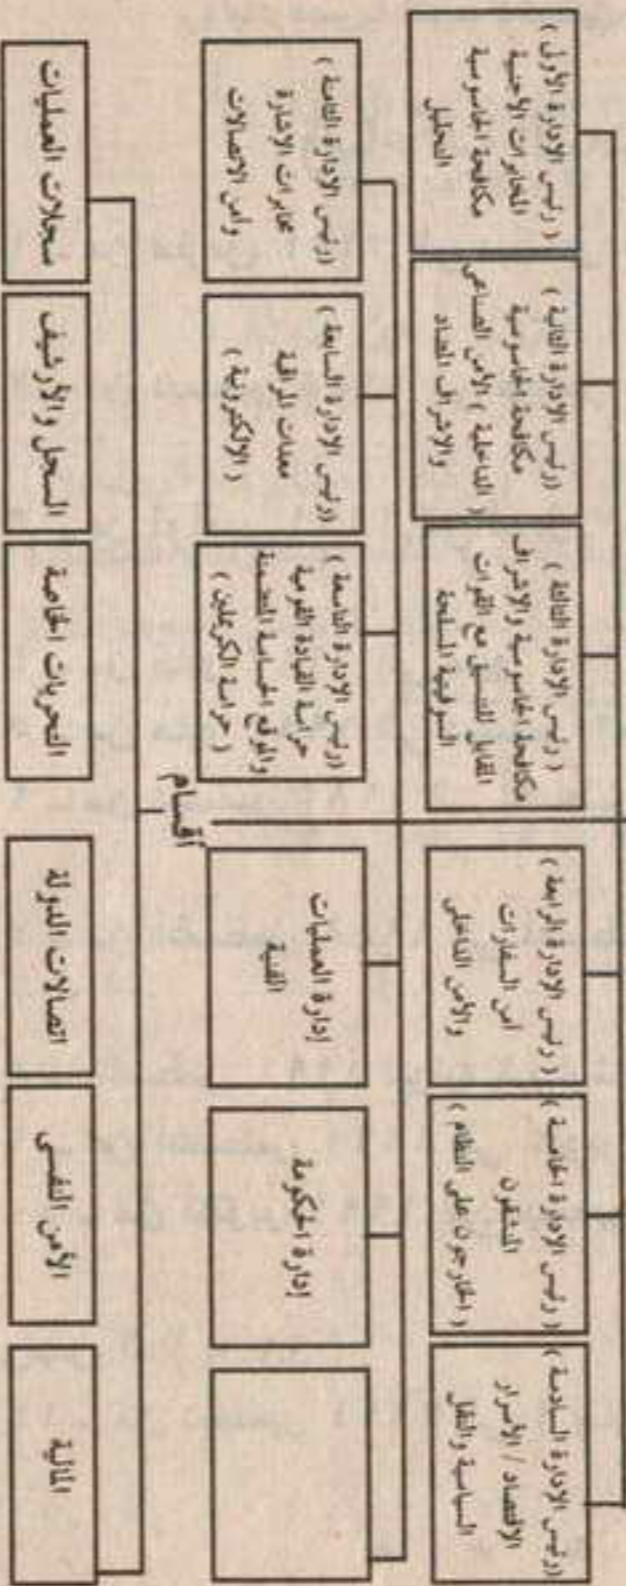 ( رئيس الإدارة الأولى )
المخابرات الأجنبية
مكافحة الجاسوسية
التحليل
( رئيس الإدارة الثانية )
مكافحة الجاسوسية
( الداخلية ) الأمن الصناعى
والاشراف المضاد
( رئيس الإدارة الثالثة )
مكافحة الجاسوسية والاشراف
المقابل للتنسيق مع القوات
السوفيتية المسلحة
( رئيس الإدارة الرابعة )
أمن السفارات
والأمن الداخلى
( رئيس الإدارة الخامسة )
المنشقون
( الخارجون على النظام )
(رئيس الإدارة السادسة )
الاقتصاد / الأسرار
السياسية والنقل
(رئيس الإدارة الثامنة )
مخابرات الإشارة
وأمن الاتصالات
(رئيس الإدارة السابعة )
معدات المراقبة
( الالكترونية )
(رئيس الإدارة التاسعة )
حراسة القيادة القومية
والمواقع الحساسة المتضمنة
( حراسة الكرملين )
إدارة العمليات
الفنية
إدارة الحكومة
أقسام
سجلات العمليات
السجل والأرشيف
التحريات الخاصة
اتصالات الدولة
الأمن النفسى
المالية